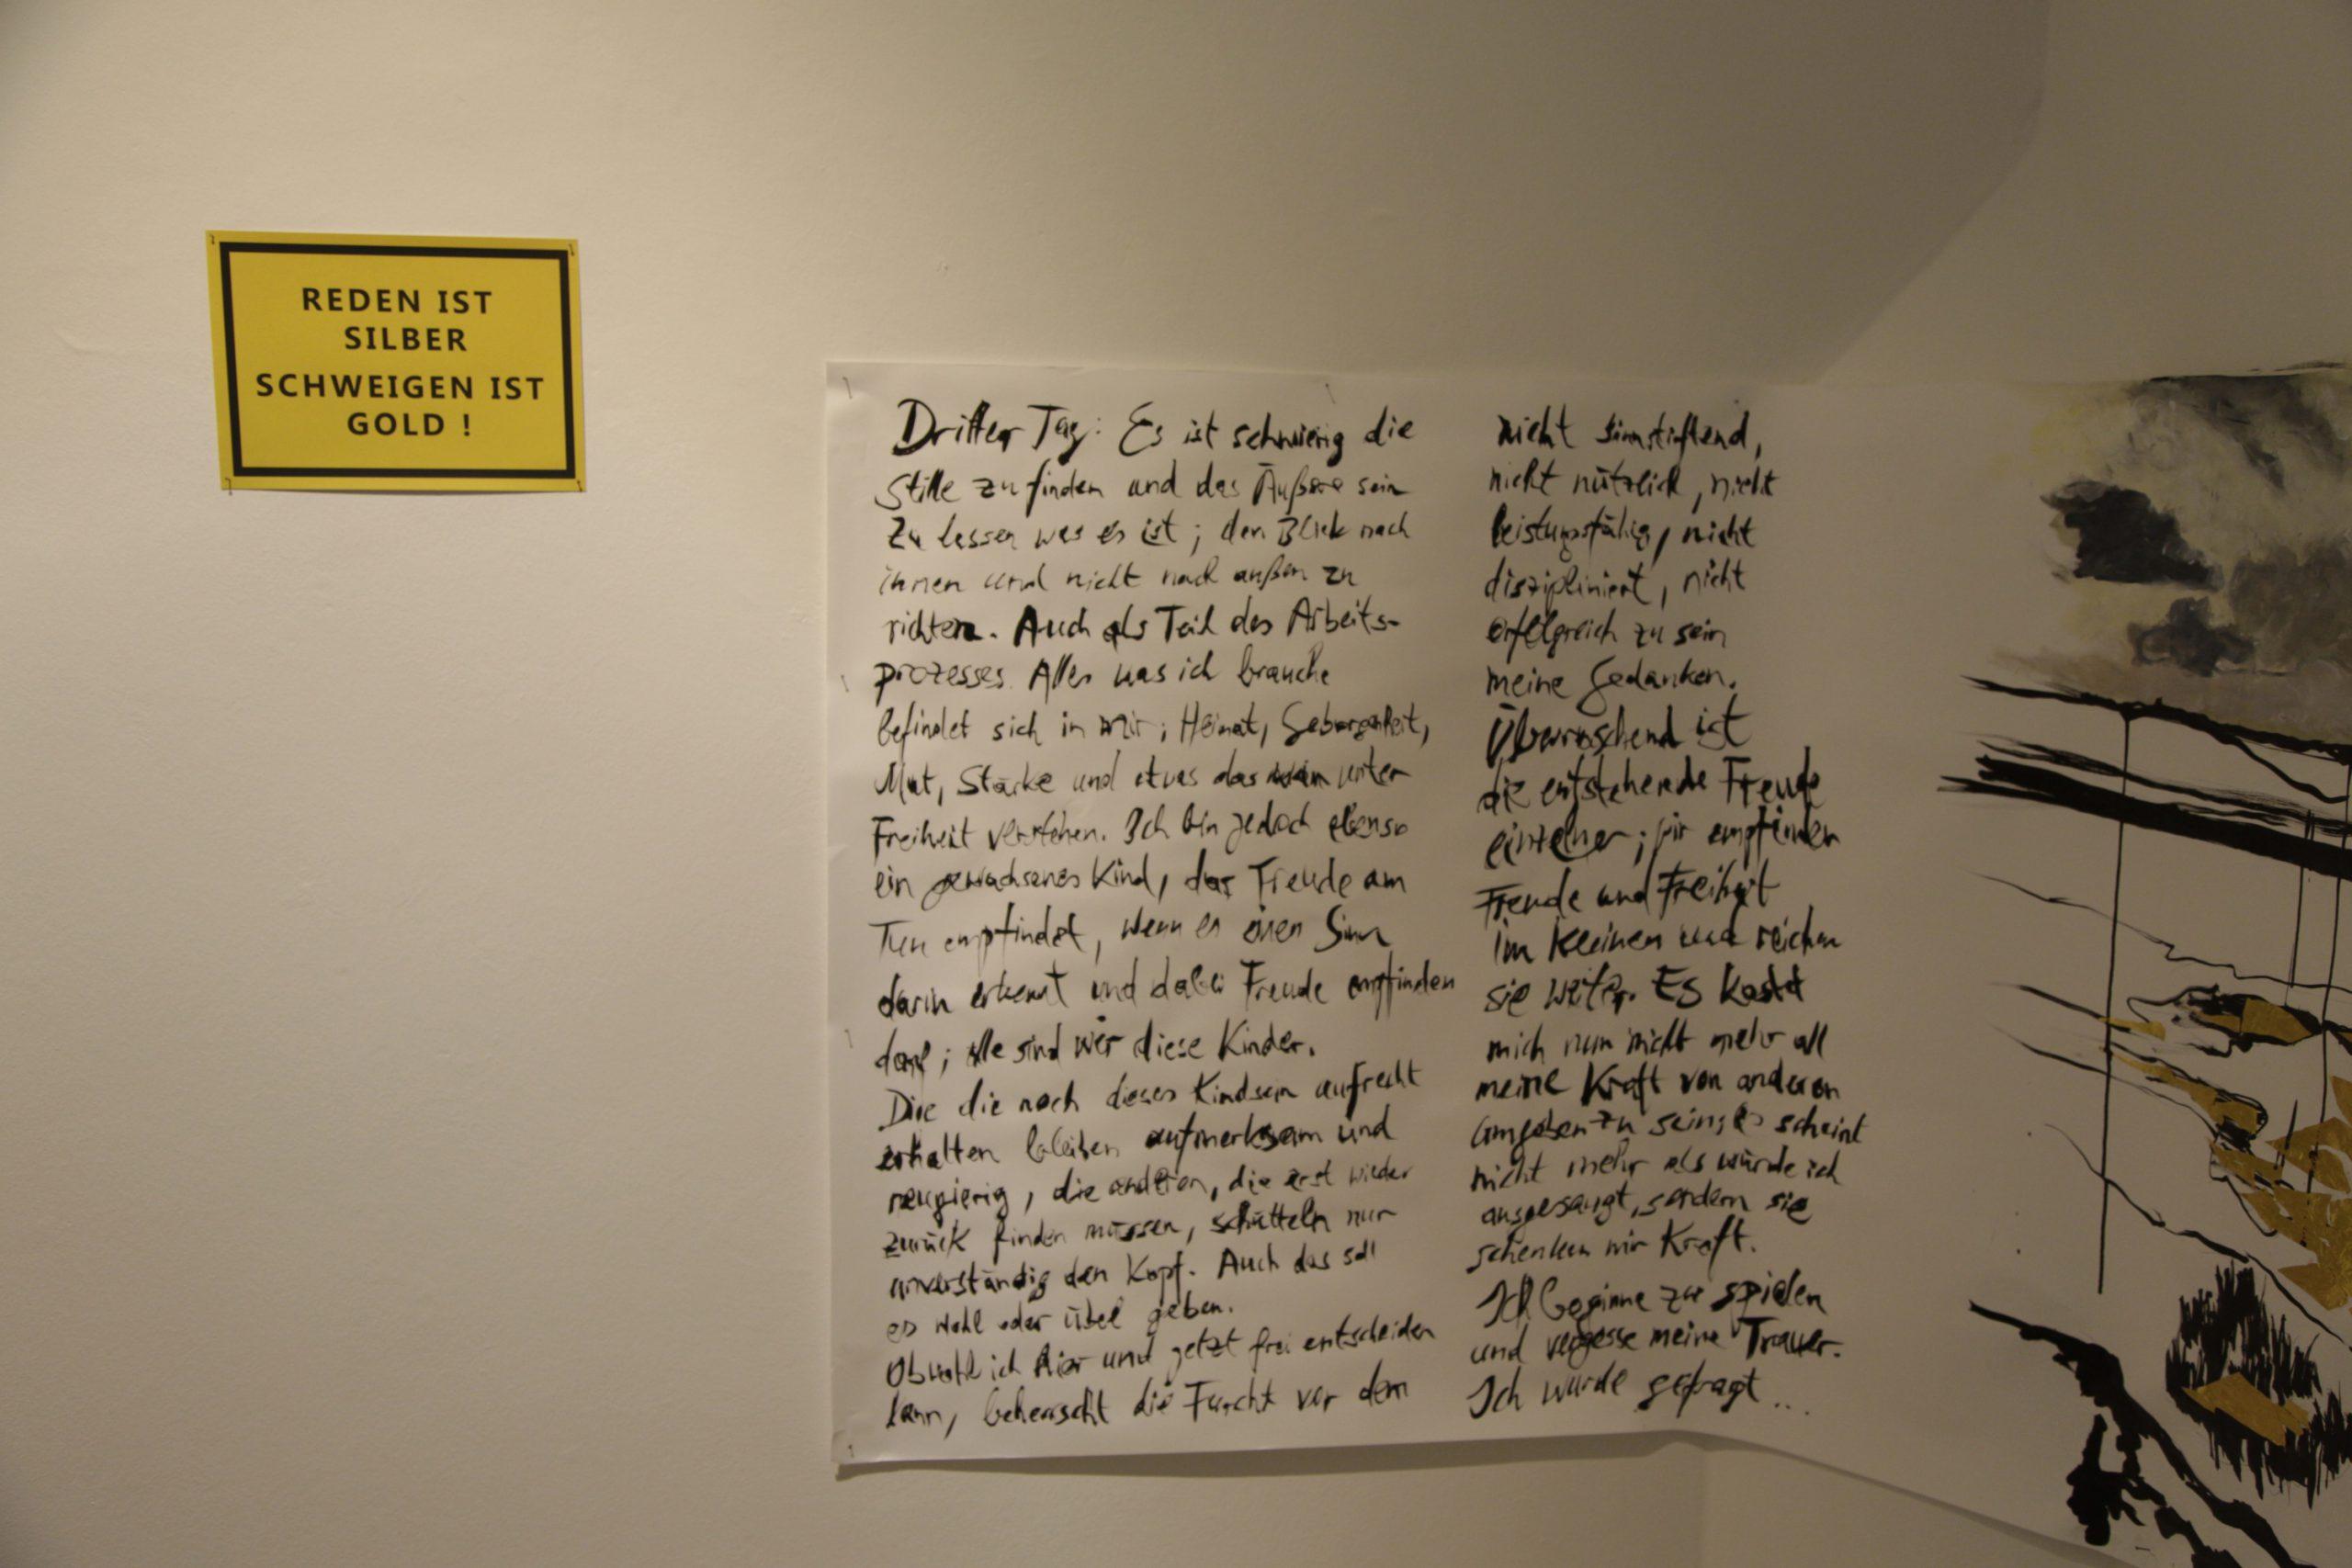 REDEN IST
SILBER
SCHWEIGEN IST
GOLD !
Dritter Tag: Es ist schwierig die
Stille zu finden und das Äußere sein
zu lassen was es ist; den Blick nach
innen und nicht nach außen zu
richten. Auch als Teil des Arbeits-
prozesses. Alles was ich brauche
befindet sich in mir; Heimat, Geborgenheit,
Mut, Stärke und etwas das wir unter
Freiheit verstehen. Ich bin jedoch ebenso
ein gewachsenes Kind, das Freude am
Tun empfindet, wenn es einen Sinn
darin erkennt und dabei Freude empfinden
darf; alle sind wir diese Kinder.
Die die noch dieses Kindsein aufrecht
erhalten bleiben aufmerksam und
neugierig, die anderen, die erst wieder
zurück finden müssen, schütteln nur
unverständig den Kopf. Auch das soll
es wohl oder übel geben.
Obwohl ich hier und jetzt frei entscheiden
kann, beherrscht die Furcht vor dem
nicht sinnstiftend,
nicht nützlich, nicht
leistungsfähig, nicht
diszipliniert, nicht
erfolgreich zu sein
meine Gedanken.
Überraschend ist
die entstehende Freude
einzelner; wir empfinden
Freude und Freiheit
im Kleinen und reichen
sie weiter. Es kostet
mich nun nicht mehr all
meine Kraft von anderen
umgeben zu sein; es scheint
nicht mehr als würde ich
ausgesaugt, sondern sie
schenken mir Kraft.
Ich beginne zu spielen
und vergesse meine Trauer.
Ich wurde gefragt ...